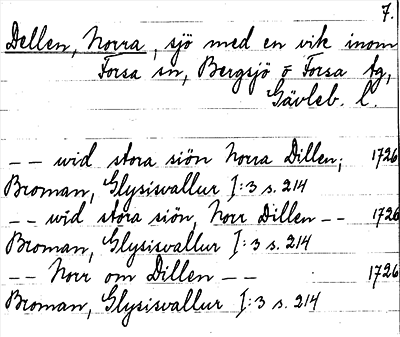 7.
Dellen, Norra, sjö med en vik inom
Forsa sn, Bergsjö o Forsa tg,
Gävleb. l.
-- wid stora siön Norra Dillen; 1726
Broman, Glysisvallur I:3 s. 214
-- wid stora siön, Norr Dillen -- 1726
Broman, Glysisvallur I:3 s. 214
-- Norr om Dillen -- 1726
Broman, Glysisvallur I:3 s. 214